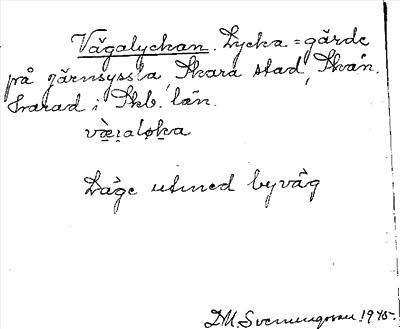 Vägalyckan. Lycka = gärde
på Järnsyssla, Skara stad, Skån.
harad i Skb. län.
væ̱ɪ̯aløka
Läge utmed byväg
D.M. Svenungsson 1945.